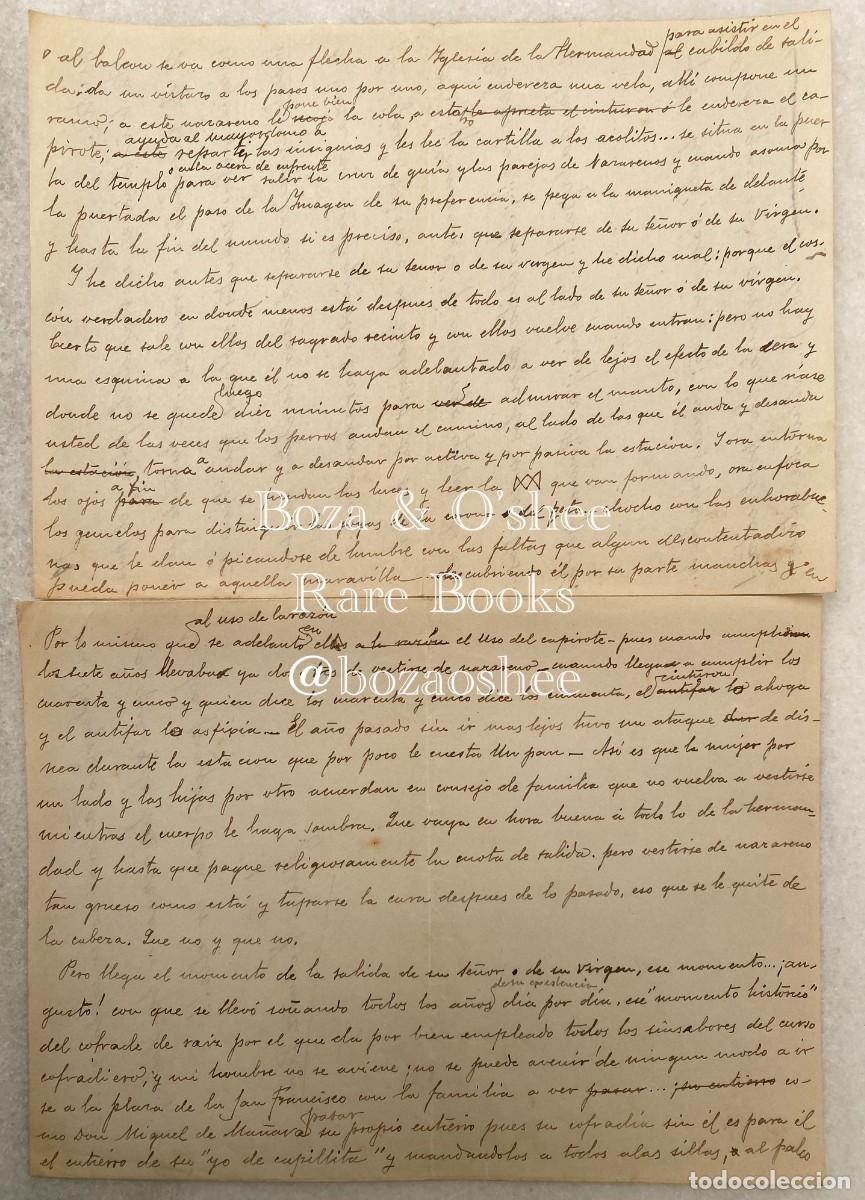 para asistir en el
al balcon se va como una flecha a la Iglesia de la Hermandad al cabildo de sali-
da: da un vistazo a los pasos uno por uno, aqui endereza una vela, allí compone un
pone bien
ramo; a este nazareno le recoje la cola, a este le aprieta el cinturon ó le endereza el ca-
ayuda al mayordomo a
pirote; a este repartir las insignias y les lee la cartilla a los acolitos... se situa en la puer-
en la acera de enfrente
ta del templo para ver salir la cruz de guía y las parejas de Nazarenos y cuando asoma por
la puertada el paso de la Imagen de su preferencia, se pega a la manigueta de delante
y hasta la fin del mundo si es preciso, antes que separarse de su señor ó de su Virgen.
Y he dicho antes que separarse de su señor o de su virgen y he dicho mal: porque el cos-
cón verdadero en donde menos está despues de todo es al lado de su señor ó de su virgen.
Cierto que sale con ellos del sagrado recinto y con ellos vuelve cuando entran: pero no hay
una esquina a la que él no se haya adelantado a ver de lejos el efecto de la cera y
luego
donde no se quede diez minutos para ver de admirar el manto, con lo que ríase
usted de las veces que los perros andan el camino, al lado de las que él anda y desanda
la estación, torna a andar y a desandar por activa y por pasiva la estacion. Y ora entorna
a fin
los ojos para de que se las luces y leer la que van formando, ora enfoca
los gemelos para distinguir las de la corona chocho con las enhorabue-
nas que le dan ó picandose de lumbre con las faltas que algun descontentadizo
pueda poner a aquella maravilla descubriendo él por su parte manchas y en
Boza & O'shee
Rare Books
@bozaoshee
al uso de la razón
en
Por lo mismo que se adelantó ellos a la razón el uso del capirote - pues cuando cumplieron
los siete años llevaba ya dos de vestirse de nazareno cuando llega a cumplir los
cinturon
cuarenta y cinco y quien dice los cuarenta y cinco dice los cincuenta, el antifaz lo ahoga
y el antifaz lo asfixia - El año pasado sin ir mas lejos tuvo un ataque de dis-
nea durante la estacion que por poco le cuesta un pan - Asi es que la mujer por
un lado y las hijas por otro acuerdan en consejo de familia que no vuelva a vestirse
mientras el cuerpo le haga sombra. Que vaya en hora buena á todo lo de la herman-
dad y hasta que pague religiosamente la cuota de salida. pero vestirse de nazareno
tan grueso como está y taparse la cara despues de lo pasado, eso que se le quite de
la cabeza. Que no y que no.
Pero llega el momento de la salida de su señor o de su Virgen, ese momento... ¡an-
de su existencia,
gusto! con que se llevó soñando todos los años día por día, ese "momento historico"
del cofrade de raiz por el que da por bien empleado todos los sinsabores del curso
cofradiero; y mi hombre no se aviene; no se puede avenir de ningun modo a ir
se a la plaza de la San Francisco con la familia a ver pasar... ¡su entierro co-
pasar
mo Don Miguel de Mañara su propio entierro pues su cofradia sin él es para él
el entierro de su "yo de capillita" y mandandolos a todos a las sillas, al palco
todocoleccion